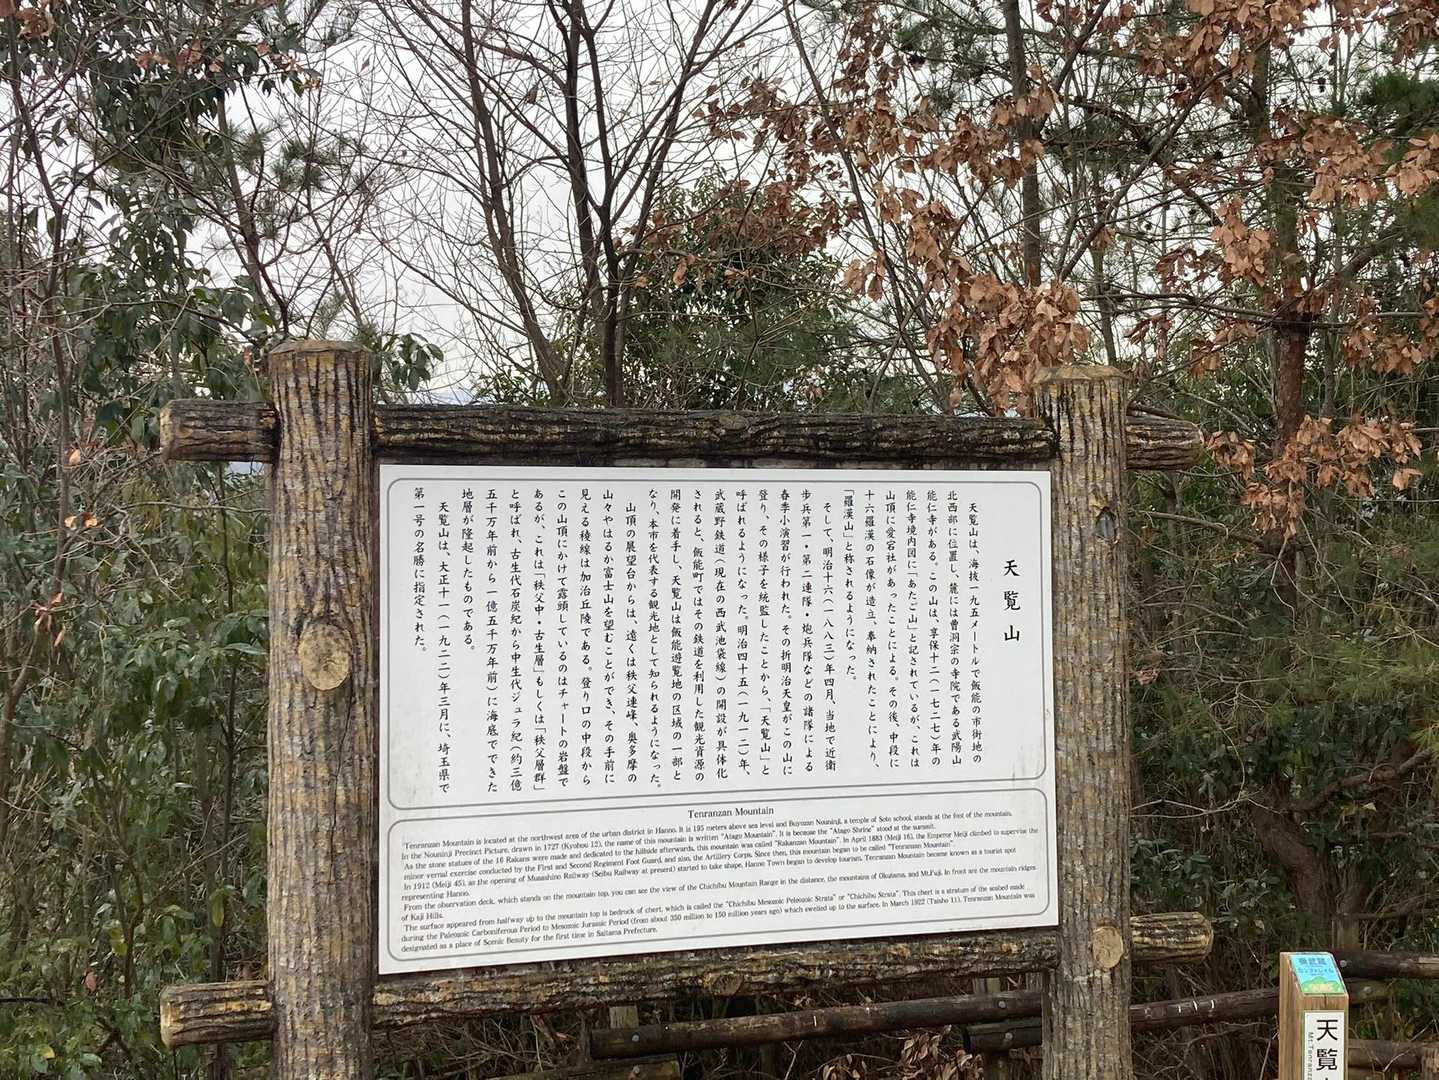 天覧山
天覧山は、海抜一九五メートルで飯能の市街地の
北西部に位置し、麓には曹洞宗の寺院である武陽山
能仁寺がある。この山は、享保十二(一七二七)年の
能仁寺境内図に「あたご山」と記されているが、これは
山頂に愛宕社があったことによる。その後、中段に
十六羅漢の石像が造立、奉納されたことにより、
「羅漢山」と称されるようになった。
そして、明治十六(一八八三)年四月、当地で近衛
歩兵第一・第二連隊・炮兵隊などの諸隊による
春季小演習が行われた。その折明治天皇がこの山に
登り、その様子を統監したことから、「天覧山」と
呼ばれるようになった。明治四十五(一九一二)年、
武蔵野鉄道(現在の西武池袋線)の開設が具体化
されると、飯能町ではその鉄道を利用した観光資源の
開発に着手し、天覧山は飯能遊覧地の区域の一部と
なり、本市を代表する観光地として知られるようになった。
山頂の展望台からは、遠くは秩父連峰、奥多摩の
山々やはるか富士山を望むことができ、その手前に
見える稜線は加治丘陵である。登り口の中段から
この山頂にかけて露頭しているのはチャートの岩盤で
あるが、これは「秩父中・古生層」もしくは「秩父層群」
と呼ばれ、古生代石炭紀から中生代ジュラ紀(約三億
五千万年前から一億五千万年前)に海底でできた
地層が隆起したものである。
天覧山は、大正十一(一九二二)年三月に、埼玉県で
第一号の名勝に指定された。
Tenranzan Mountain
Tenranzan Mountain is located at the northwest area of the urban district in Hanno. It is 195 meters above sea level and Buyozan Nouninji, a temple of Soto school, stands at the foot of the mountain.
In the Nouninji Precinct Picture, drawn in 1727 (Kyohou 12), the name of this mountain is written "Atago Mountain". It is because the "Atago Shrine" stood at the summit.
As the stone statues of the 16 Rakans were made and dedicated to the hillside afterwards, this mountain was called "Rakanzan Mountain". In April 1883 (Meiji 16), the Emperor Meiji climbed to supervise the
minor vernal exercise conducted by the First and Second Regiment Foot Guard, and also, the Artillery Corps. Since then, this mountain began to be called "Tenranzan Mountain".
In 1912 (Meiji 45), as the opening of Musashino Railway (Seibu Railway at present) started to take shape, Hanno Town began to develop tourism. Tenranzan Mountain became known as a tourist spot
representing Hanno.
From the observation deck, which stands on the mountain top, you can see the view of the Chichibu Mountain Range in the distance, the mountains of Okutama, and Mt.Fuji. In front are the mountain ridges
of Kaji Hills.
The surface appeared from halfway up to the mountain top is bedrock of chert, which is called the "Chichibu Mesozoic Peleozoic Strata" or "Chichibu Strata". This chert is a stratum of the seabed made
during the Paleozoic Carboniferous Period to Mesozoic Jurassic Period (from about 350 million to 150 million years ago) which swelled up to the surface. In March 1922 (Taisho 11), Tenranzan Mountain was
designated as a place of Scenic Beauty for the first time in Saitama Prefecture.
天覧
Mt.Tenranz